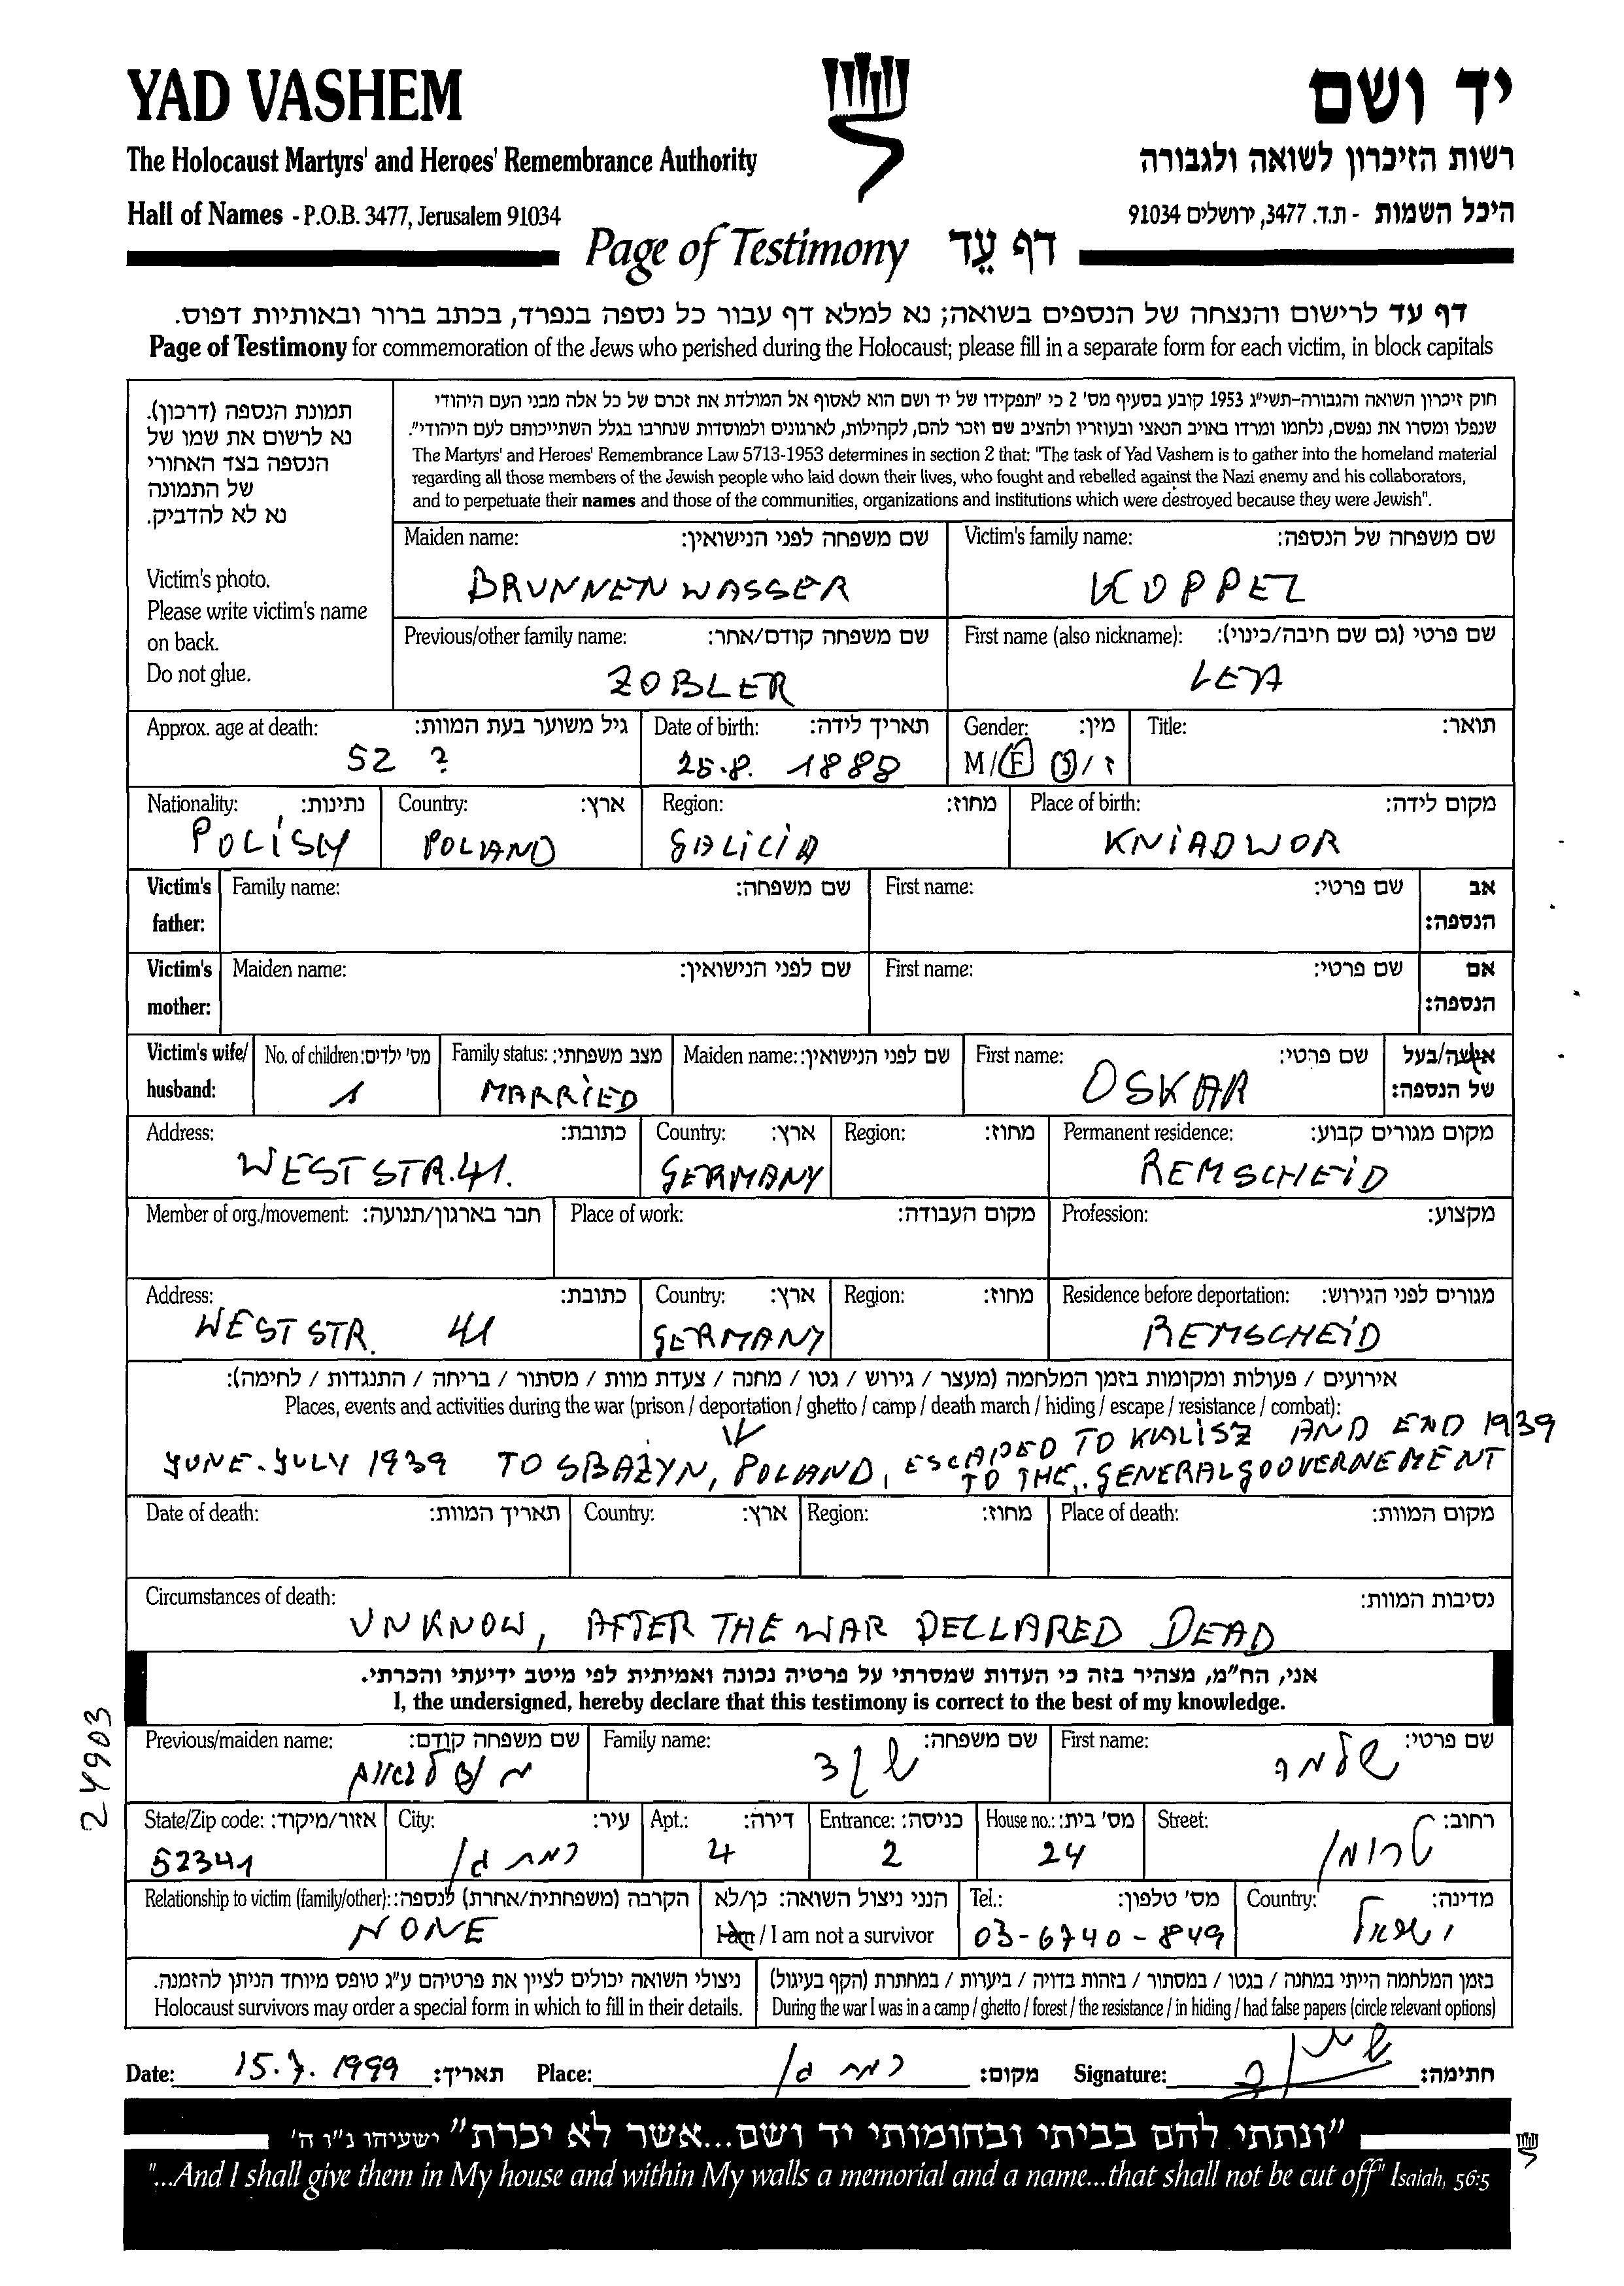 YAD VASHEM
יד ושם
The Holocaust Martyrs' and Heroes' Remembrance Authority
רשות הזיכרון לשואה ולגבורה
Hall of Names - P.O.B. 3477, Jerusalem 91034
היכל השמות - ת.ד. 3477, ירושלים 91034
Page of Testimony דף עֵד
דף עד לרישום והנצחה של הנספים בשואה; נא למלא דף עבור כל נספה בנפרד, בכתב ברור ובאותיות דפוס.
Page of Testimony for commemoration of the Jews who perished during the Holocaust; please fill in a separate form for each victim, in block capitals
תמונת הנספה (דרכון).
נא לרשום את שמו של
הנספה בצד האחורי
של התמונה
נא לא להדביק.
Victim's photo.
Please write victim's name
on back.
Do not glue.
חוק זיכרון השואה והגבורה-תשי"ג 1953 קובע בסעיף מס' 2 כי "תפקידו של יד ושם הוא לאסוף אל המולדת את זכרם של כל אלה מבני העם היהודי
שנפלו ומסרו את נפשם, נלחמו ומרדו באויב הנאצי ובעוזריו ולהציב שם וזכר להם, לקהילות, לארגונים ולמוסדות שנחרבו בגלל השתייכותם לעם היהודי".
The Martyrs' and Heroes' Remembrance Law 5713-1953 determines in section 2 that: "The task of Yad Vashem is to gather into the homeland material
regarding all those members of the Jewish people who laid down their lives, who fought and rebelled against the Nazi enemy and his collaborators,
and to perpetuate their names and those of the communities, organizations and institutions which were destroyed because they were Jewish".
Maiden name: שם משפחה לפני הנישואין:
BRUNNENWASSER
Victim's family name: שם משפחה של הנספה:
KOPPEL
Previous/other family name: שם משפחה קודם/אחר:
ZOBLER
First name (also nickname): שם פרטי (גם שם חיבה/כינוי):
LEA
Approx. age at death: גיל משוער בעת המוות:
52 ?
Date of birth: תאריך לידה:
25.8. 1888
Gender: מין:
M / F נ / ז
Title: תואר:
Nationality: נתינות:
POLISH
Country: ארץ:
POLAND
Region: מחוז:
GALICIA
Place of birth: מקום לידה:
KNIADWOR
Victim's father: Family name: שם משפחה: First name: שם פרטי: אב הנספה:
Victim's mother: Maiden name: שם לפני הנישואין: First name: שם פרטי: אם הנספה:
Victim's wife/ husband:
No. of children: מס' ילדים:
1
Family status: מצב משפחתי:
MARRIED
Maiden name: שם לפני הנישואין:
First name: שם פרטי:
OSKAR
אישה/בעל של הנספה:
Address: כתובת:
WESTSTR.41.
Country: ארץ:
GERMANY
Region: מחוז:
Permanent residence: מקום מגורים קבוע:
REMSCHEID
Member of org./movement: חבר בארגון/תנועה:
Place of work: מקום העבודה:
Profession: מקצוע:
Address: כתובת:
WESTSTR. 41
Country: ארץ:
GERMANY
Region: מחוז:
Residence before deportation: מגורים לפני הגירוש:
REMSCHEID
אירועים / פעולות ומקומות בזמן המלחמה (מעצר / גירוש / גטו / מחנה / צעדת מוות / מסתור / בריחה / התנגדות / לחימה):
Places, events and activities during the war (prison / deportation / ghetto / camp / death march / hiding / escape / resistance / combat):
JUNE-JULY 1939 TO SBAZYN, POLAND, ESCAPED TO KALISZ AND END 1939
TO THE GENERALGOOVERNEMENT
Date of death: תאריך המוות: Country: ארץ: Region: מחוז: Place of death: מקום המוות:
Circumstances of death: נסיבות המוות:
UNKNOW, AFTER THE WAR DECLARED DEAD
אני, הח"מ, מצהיר בזה כי העדות שמסרתי על פרטיה נכונה ואמיתית לפי מיטב ידיעתי והכרתי.
I, the undersigned, hereby declare that this testimony is correct to the best of my knowledge.
24903
Previous/maiden name: שם משפחה קודם:
Family name: שם משפחה:
First name: שם פרטי:
שלמה
State/Zip code: אזור/מיקוד:
52341
City: עיר:
רמת גן
Apt.: דירה:
4
Entrance: כניסה:
2
House no.: מס' בית:
24
Street: רחוב:
טרומן
Relationship to victim (family/other): הקרבה (משפחתית/אחרת) לנספה:
NONE
הנני ניצול השואה: כן/לא
I am / I am not a survivor
Tel.: מס' טלפון:
03-6740-849
Country: מדינה:
ישראל
ניצולי השואה יכולים לציין את פרטיהם ע"ג טופס מיוחד הניתן להזמנה.
Holocaust survivors may order a special form in which to fill in their details.
בזמן המלחמה הייתי במחנה / בגטו / במסתור / בזהות בדויה / ביערות / במחתרת (הקף בעיגול)
During the war I was in a camp / ghetto / forest / the resistance / in hiding / had false papers (circle relevant options)
Date: 15.7.1999 תאריך: Place: רמת גן מקום: Signature: חתימה:
"ונתתי להם בביתי ובחומותי יד ושם...אשר לא יכרת" ישעיהו נ"ו ה'
"...And I shall give them in My house and within My walls a memorial and a name...that shall not be cut off" Isaiah, 56:5